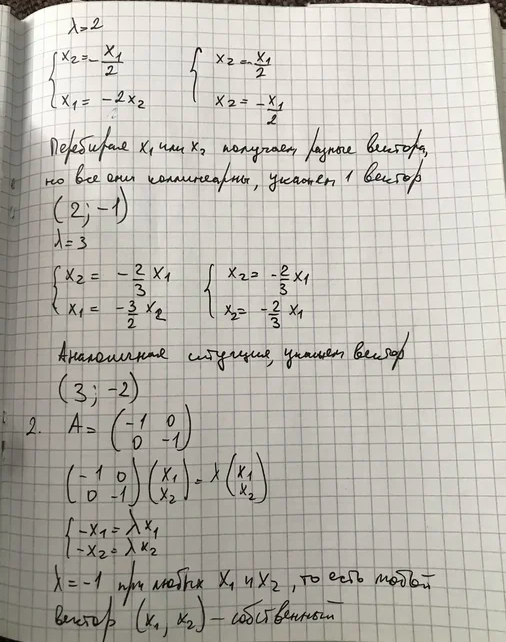 λ=2
{ x₂=-x₁/2 { x₂=-x₁/2
{ x₁= -2x₂ { x₂=-x₁/2
Перебирая x₁ или x₂ получаем разные вектора,
но все они коллинеарны, укажем 1 вектор
(2; -1)
λ=3
{ x₂= -2/3 x₁ { x₂= -2/3 x₁
{ x₁= -3/2 x₂ { x₂= -2/3 x₁
Аналогичная ситуация, укажем вектор
(3; -2)
2. A= (-1 0
0 -1)
(-1 0 (x₁ = λ (x₁
0 -1) x₂) x₂)
{ -x₁=λx₁
{ -x₂=λx₂
λ=-1 при любых x₁ и x₂, то есть любой
вектор (x₁, x₂) - собственный